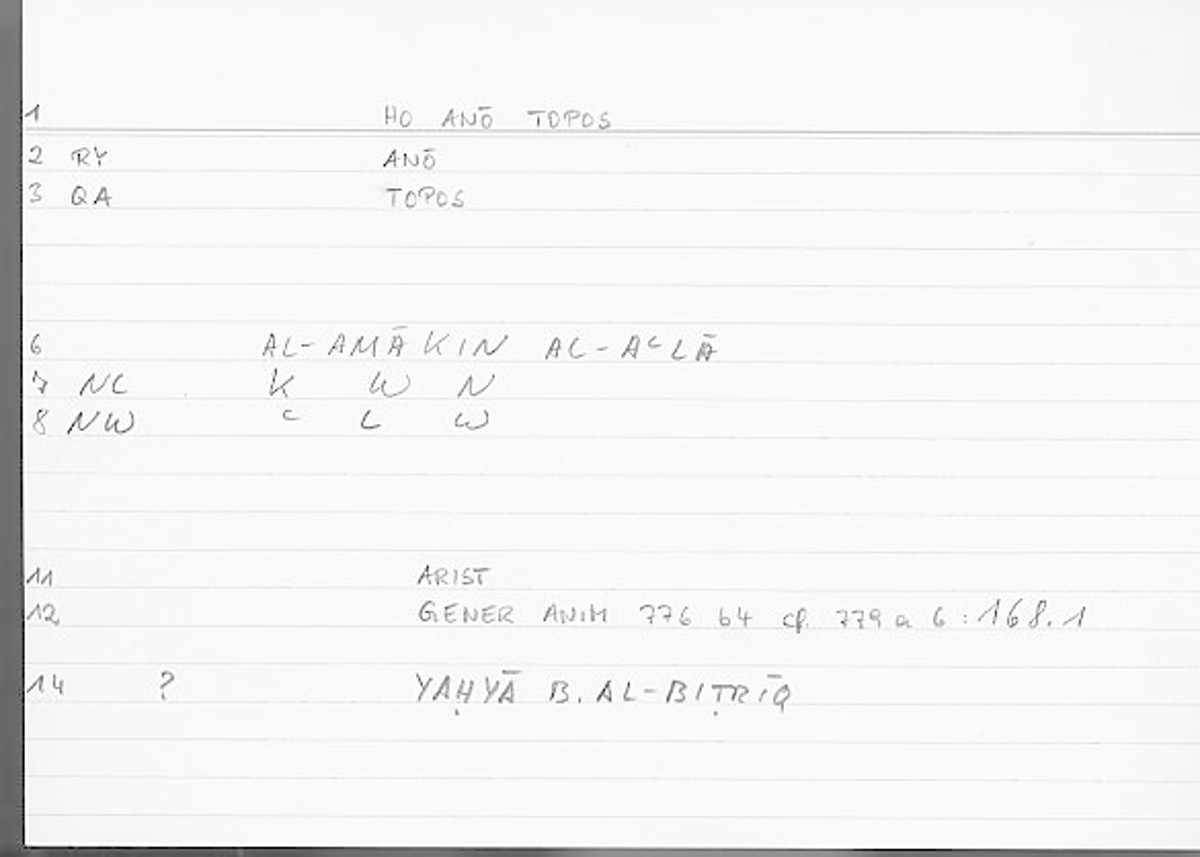 1 HO ANŌ TOPOS
2 RY ANŌ
3 QA TOPOS
6 AL-AMĀKIN AL-AᶜLĀ
7 NC K W N
8 NW ᶜ L W
11 ARIST
12 GENER ANIM 776 b4 cf. 779 a 6 : 168.1
14 ? YAḤYĀ B. AL-BIṬRĪQ